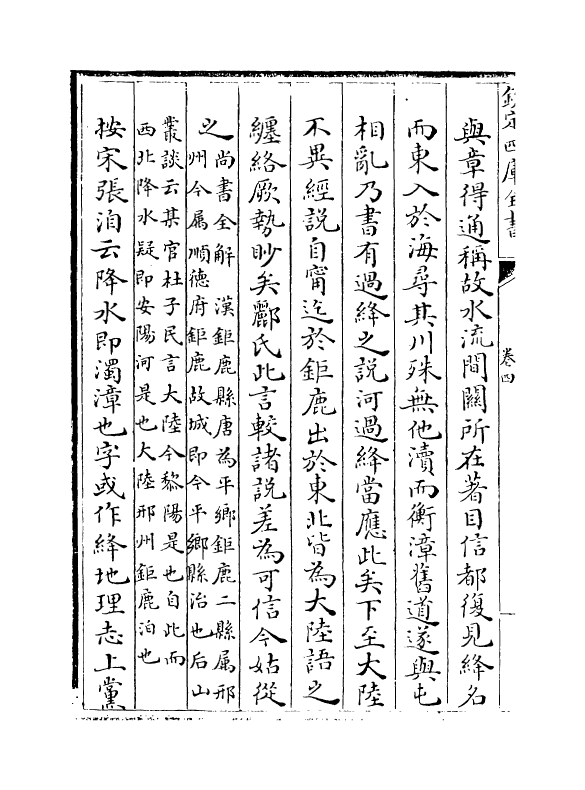 欽定四庫全書
卷四
與章得通稱故水流間關所在著目信都復見絳名
而東入於海尋其川殊無他瀆而衡漳舊道遂與屯
相亂乃書有過絳之說河過絳當應此矣下至大陸
不異經說自甯迄於鉅鹿出於東北皆為大陸語之
纏絡厥勢眇矣酈氏此言較諸說差為可信今姑從
之尚書全解 漢鉅鹿縣唐為平鄉鉅鹿二縣属邢
州今属順德府鉅鹿故城即今平鄉縣治也后山
叢談云某官杜子民言大陸今黎陽是也自此而
西北降水疑即安陽河是也大陸邢州鉅鹿泊也
按宋張洎云降水即濁漳也字或作絳地理志上黨